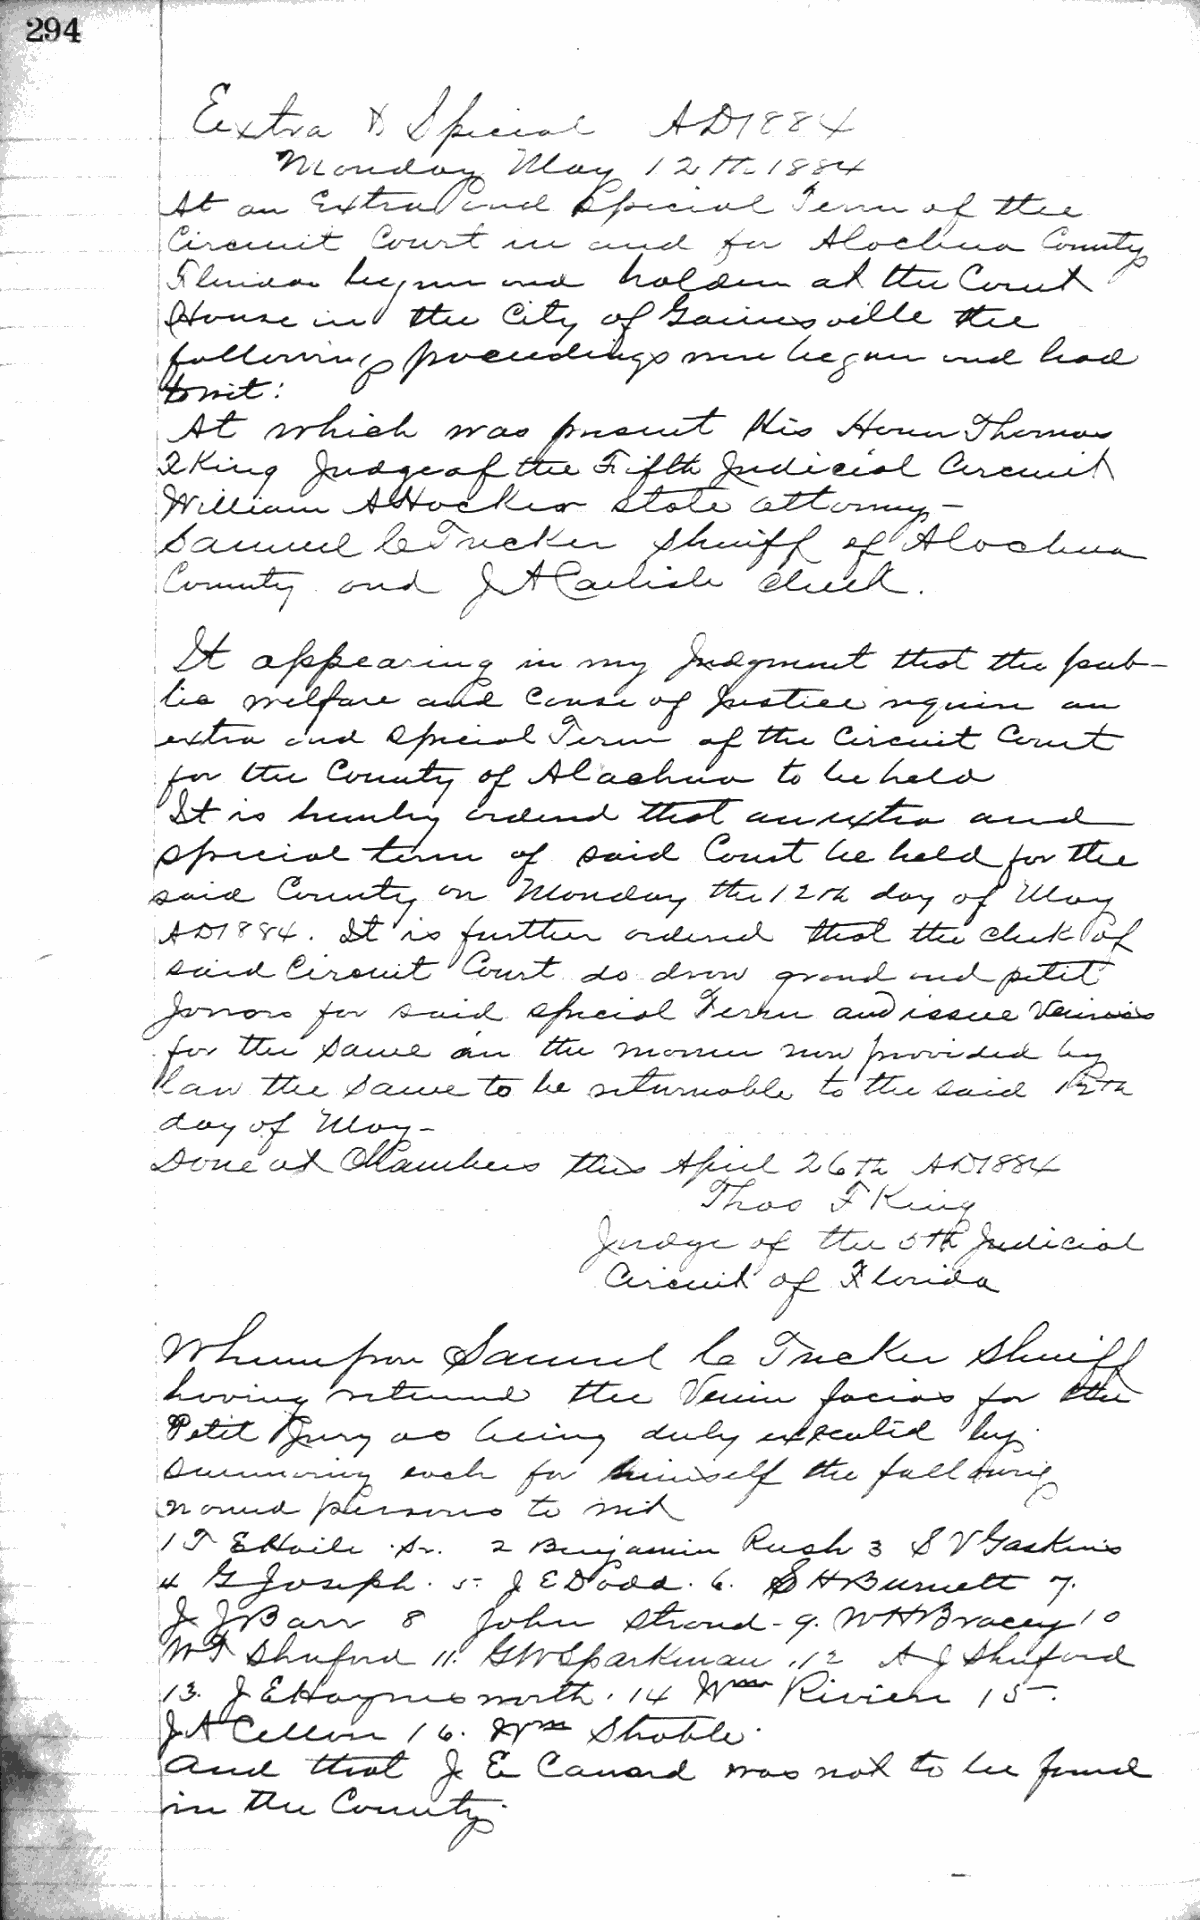 294
Extra & Special AD1884
Monday May 12th 1884
At an Extra and Special Term of the
Circuit Court in and for Alachua County
Florida begun and holden at the Court
House in the City of Gainesville the
following proceedings were begun and had
towit:
At which was present His Honor Thomas
F King Judge of the Fifth Judicial Circuit
William A Hocker State attorney-
Samuel C Tucker Sheriff of Alachua
County and J A Carlisle Clerk.
It appearing in my Judgment that the pub-
lic welfare and cause of Justice require an
extra and special Term of the Circuit Court
for the County of Alachua to be held
It is hereby ordered that an extra and
special term of said Court be held for the
said County on Monday the 12th day of May
AD1884. It is further ordered that the clerk of
said Circuit Court do draw grand and petit
Jurors for said special Term and issue Venires
for the same in the manner now provided by
law the same to be returnable to the said 12th
day of May-
Done at Chambers this April 26th AD1884
Thos F King
Judge of the 5th Judicial
Circuit of Florida
Whereupon Samuel C Tucker Sheriff
having returned the Venire facias for the
Petit Jury as being duly executed by
summoning each for himself the following
named persons to wit
1 T E Haile Sr. 2 Benjamin Rush 3 S V Gaskins
4 G Joseph. 5- J E Dodd. 6. S H Burnett 7.
J J Barr 8 John Stroud- 9. W H Bracey 10
W F Shuford 11. G W Sparkman, 12 A J Shuford
13. J E Haynesworth, 14 Wm Riviere 15-.
J A Cellon 16. Wm Stroble.
And that J E Canard was not to be found
in the County.